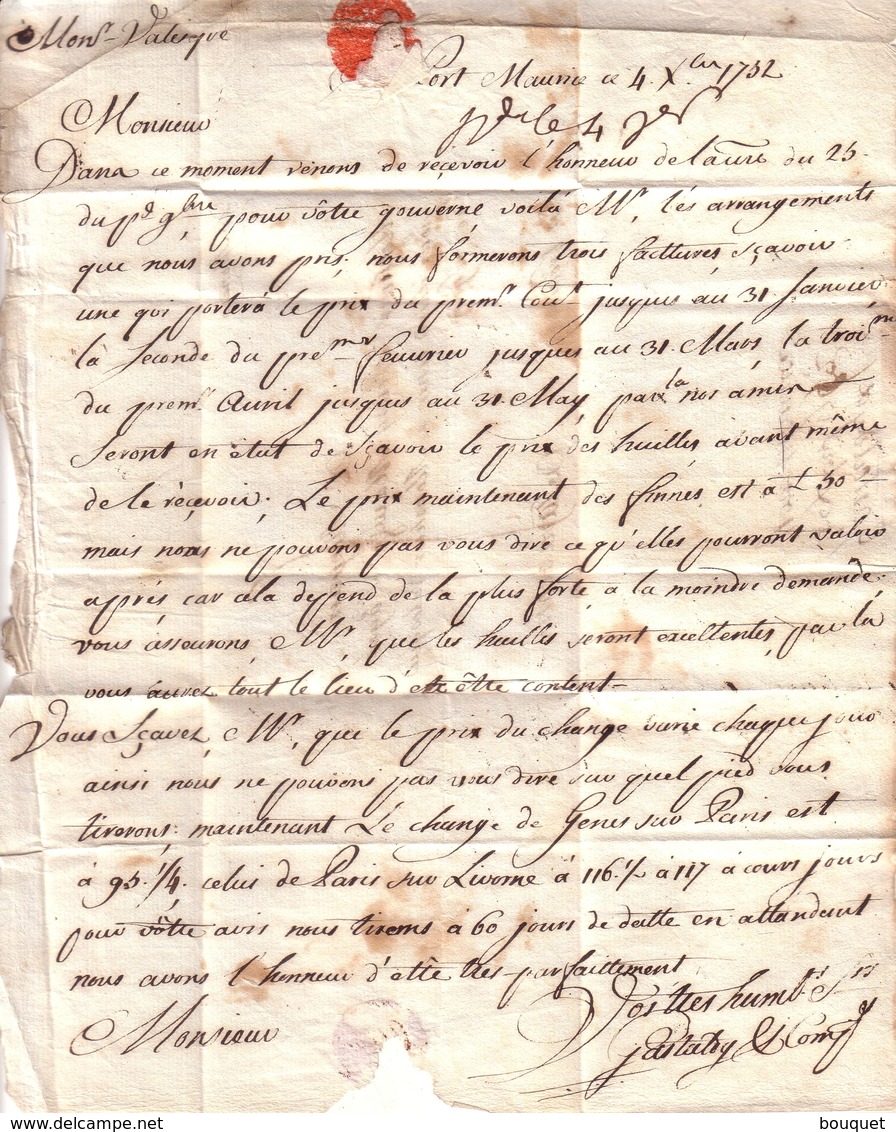 Monsr. Valesque
Port Maurice ce 4 Xbre 1752
Monsieur
Dans ce moment venons de réçévoir l'honneur de la vre du 25
du pd. 9bre, pour vôtre gouverne voilà Mr, lés arrangements
que nous avons pris, nous formerons trois facttures sçavoir
une qui porterà le prix du premr. Cout jusques au 31 Janvier
là seconde du premer feuvrier jusques au 31. Mars, la troime
du premr. Auril jusques au 31. May, par la nos amis
seront en état de sçavoir le prix des huilles, avant même
de lé réçevoir; Le prix maintenant des finnes est à £ 30 -
mais nous ne pouvons pas vous dire ce qu'elles pourront valoir
aprés car cela depend de la plus forte à la moindre demande.
vous ásseurons, Mr, que les huilles séront excellentes, par là
vous áurez tout le lieu d'etre être content -
Vous Sçavez, Mr, que le prix du change varie chaque jour
ainsi nous ne pouvons pas vous dire sur quel pied vous
tirerons; maintenant Le change de Genes sur Paris est
à 95.1/4. celui de Paris sur Livorne à 116.1/2 à 117 à cours jours
pour vôtre avis nous tirons à 60 jours de datte en attandant
nous avons l'honneur d'être tres-parfaittement
Monsieur
Vos tres humbs. srs
& Compe
bouquet